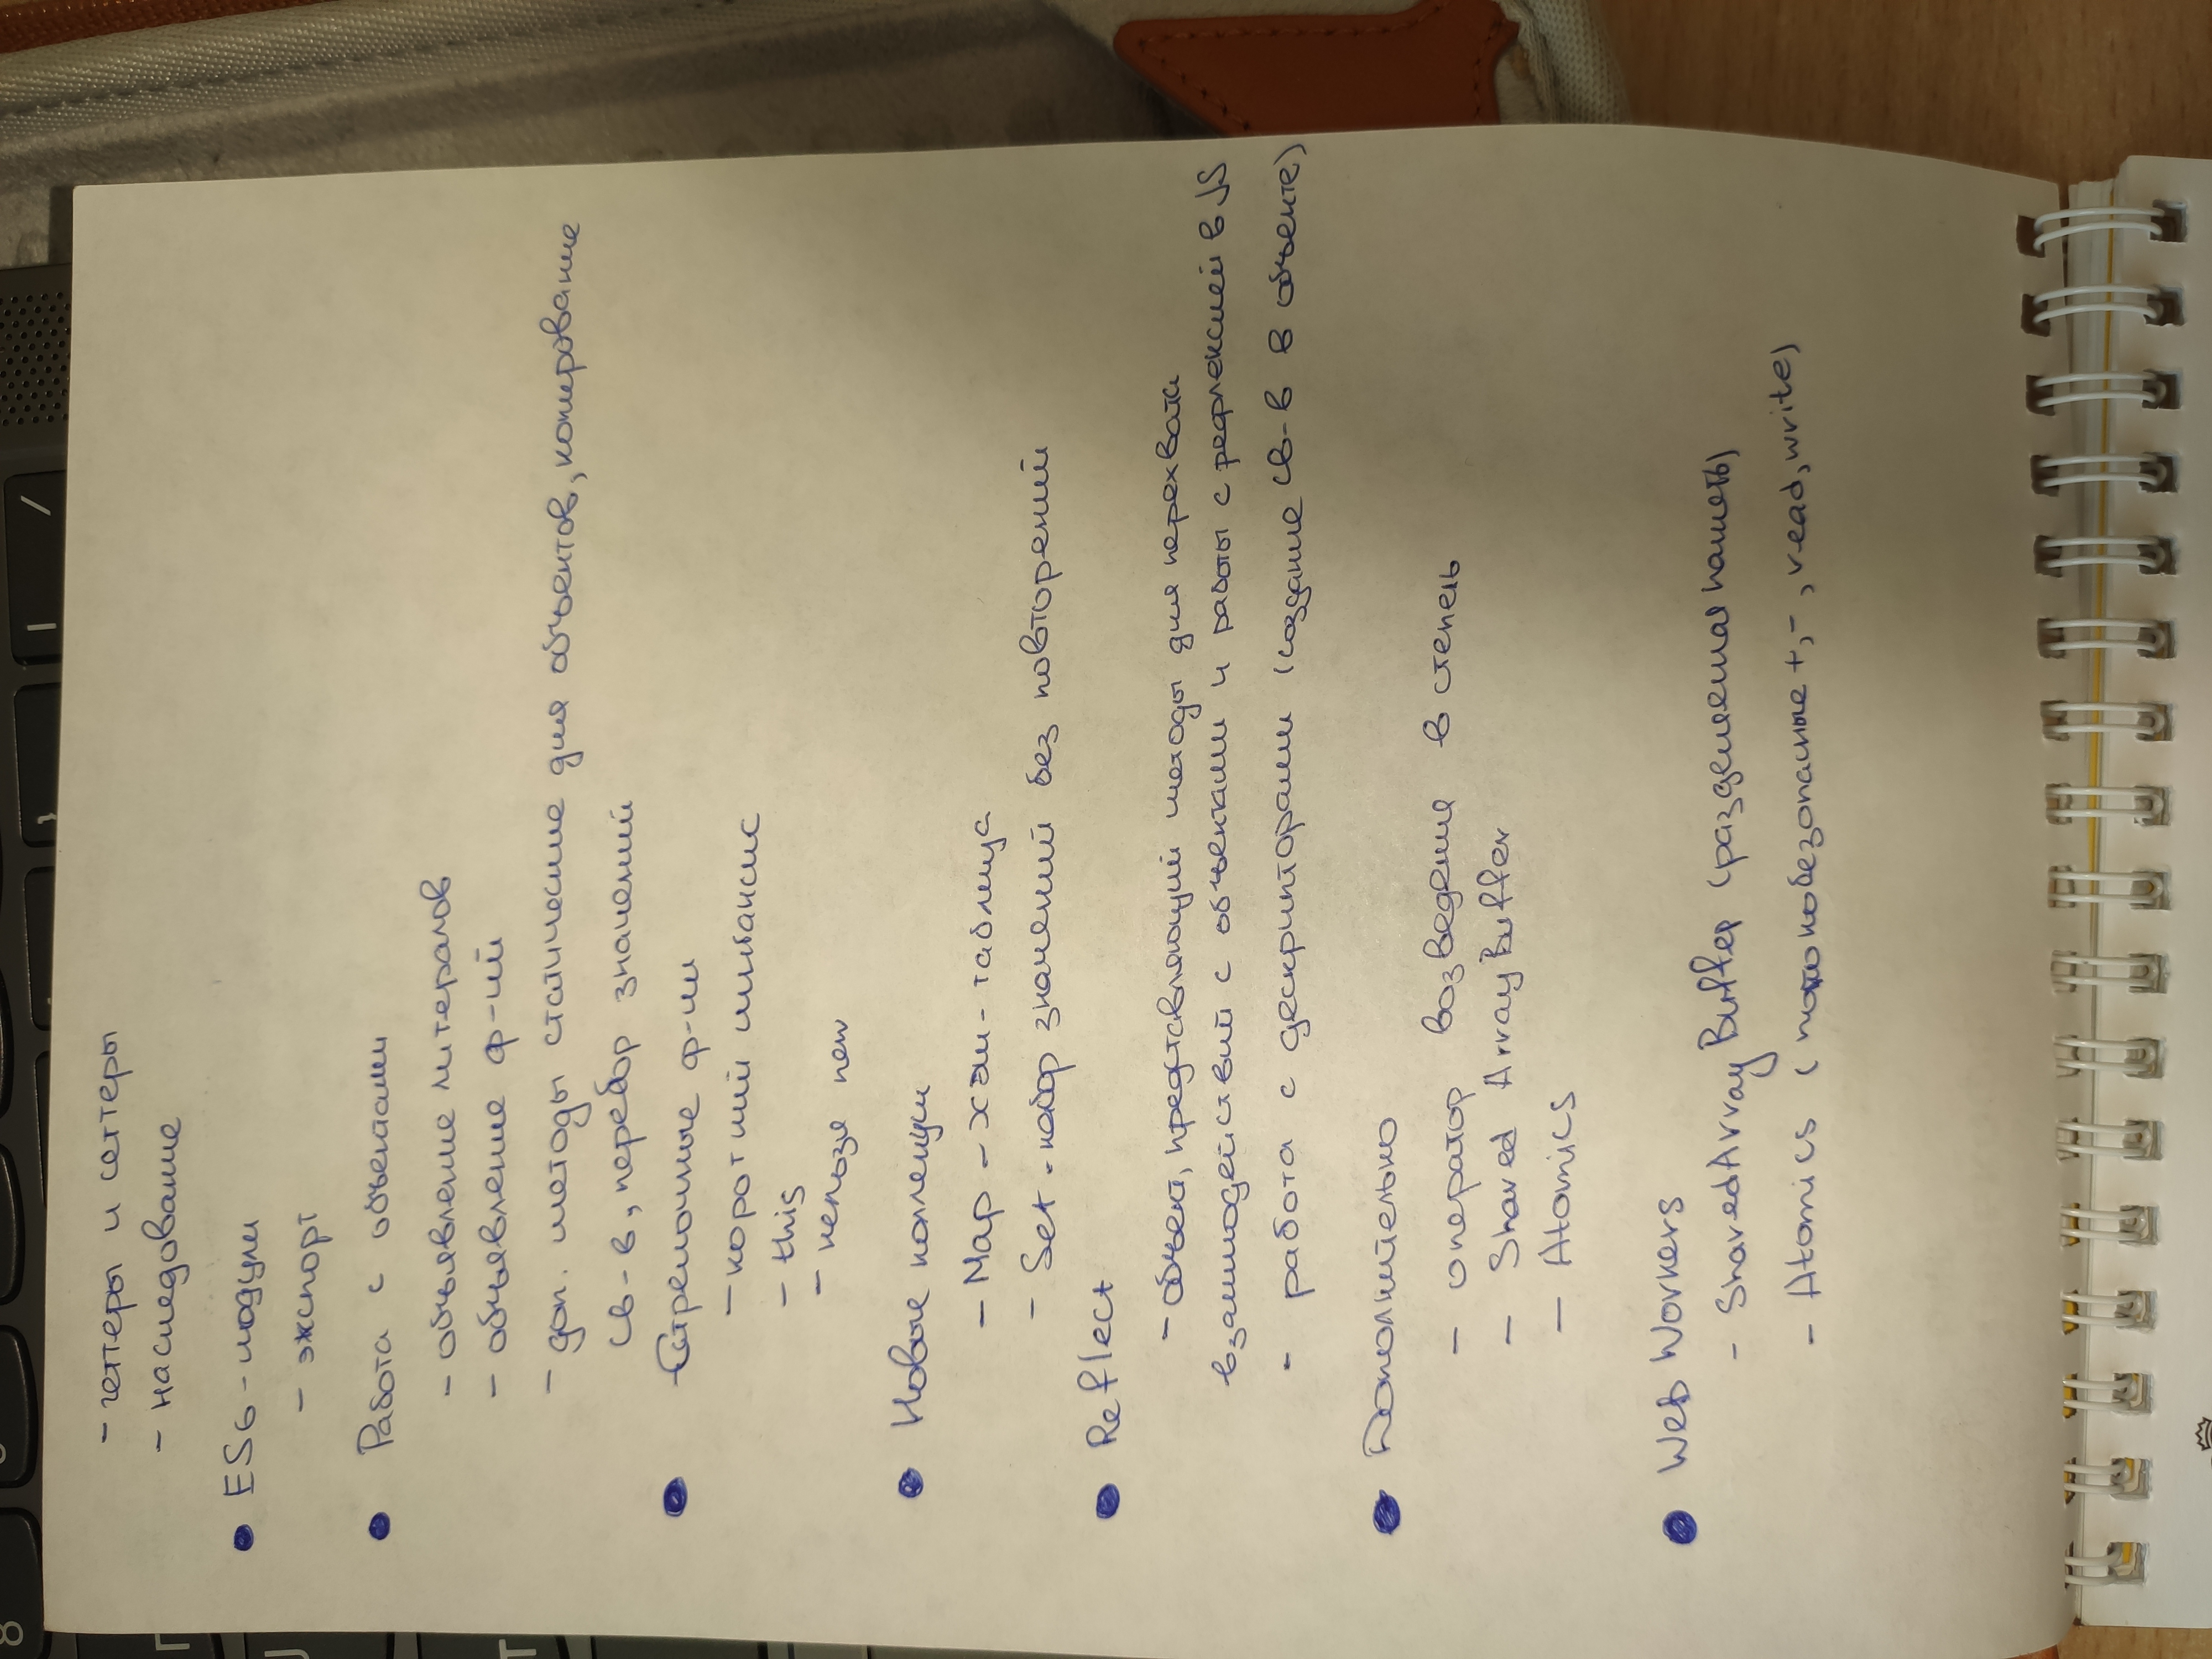 - геттеры и сеттеры
- наследование
• ES6 - модули
- экспорт
• Работа с объектами
- объявление литералов
- объявление ф-ий
- доп. методы статические для объектов, копирование
св-в, перебор значений
• Стрелочные ф-ии
- короткий синтаксис
- this
- нельзя new
• Новые коллекции
- Map - хэш-таблица
- Set - набор значений без повторений
• Reflect
- объект, представляющий методы для перехвата
взаимодействий с объектами и работы с рефлексией в JS
- работа с дескрипторами (создание св-в в объекте)
• Дополнительно
- оператор возведения в степень
- Shared ArrayBuffer
- Atomics
• Web Workers
- SharedArrayBuffer (разделяемая память)
- Atomics (потокобезопасные +, -, read, write)